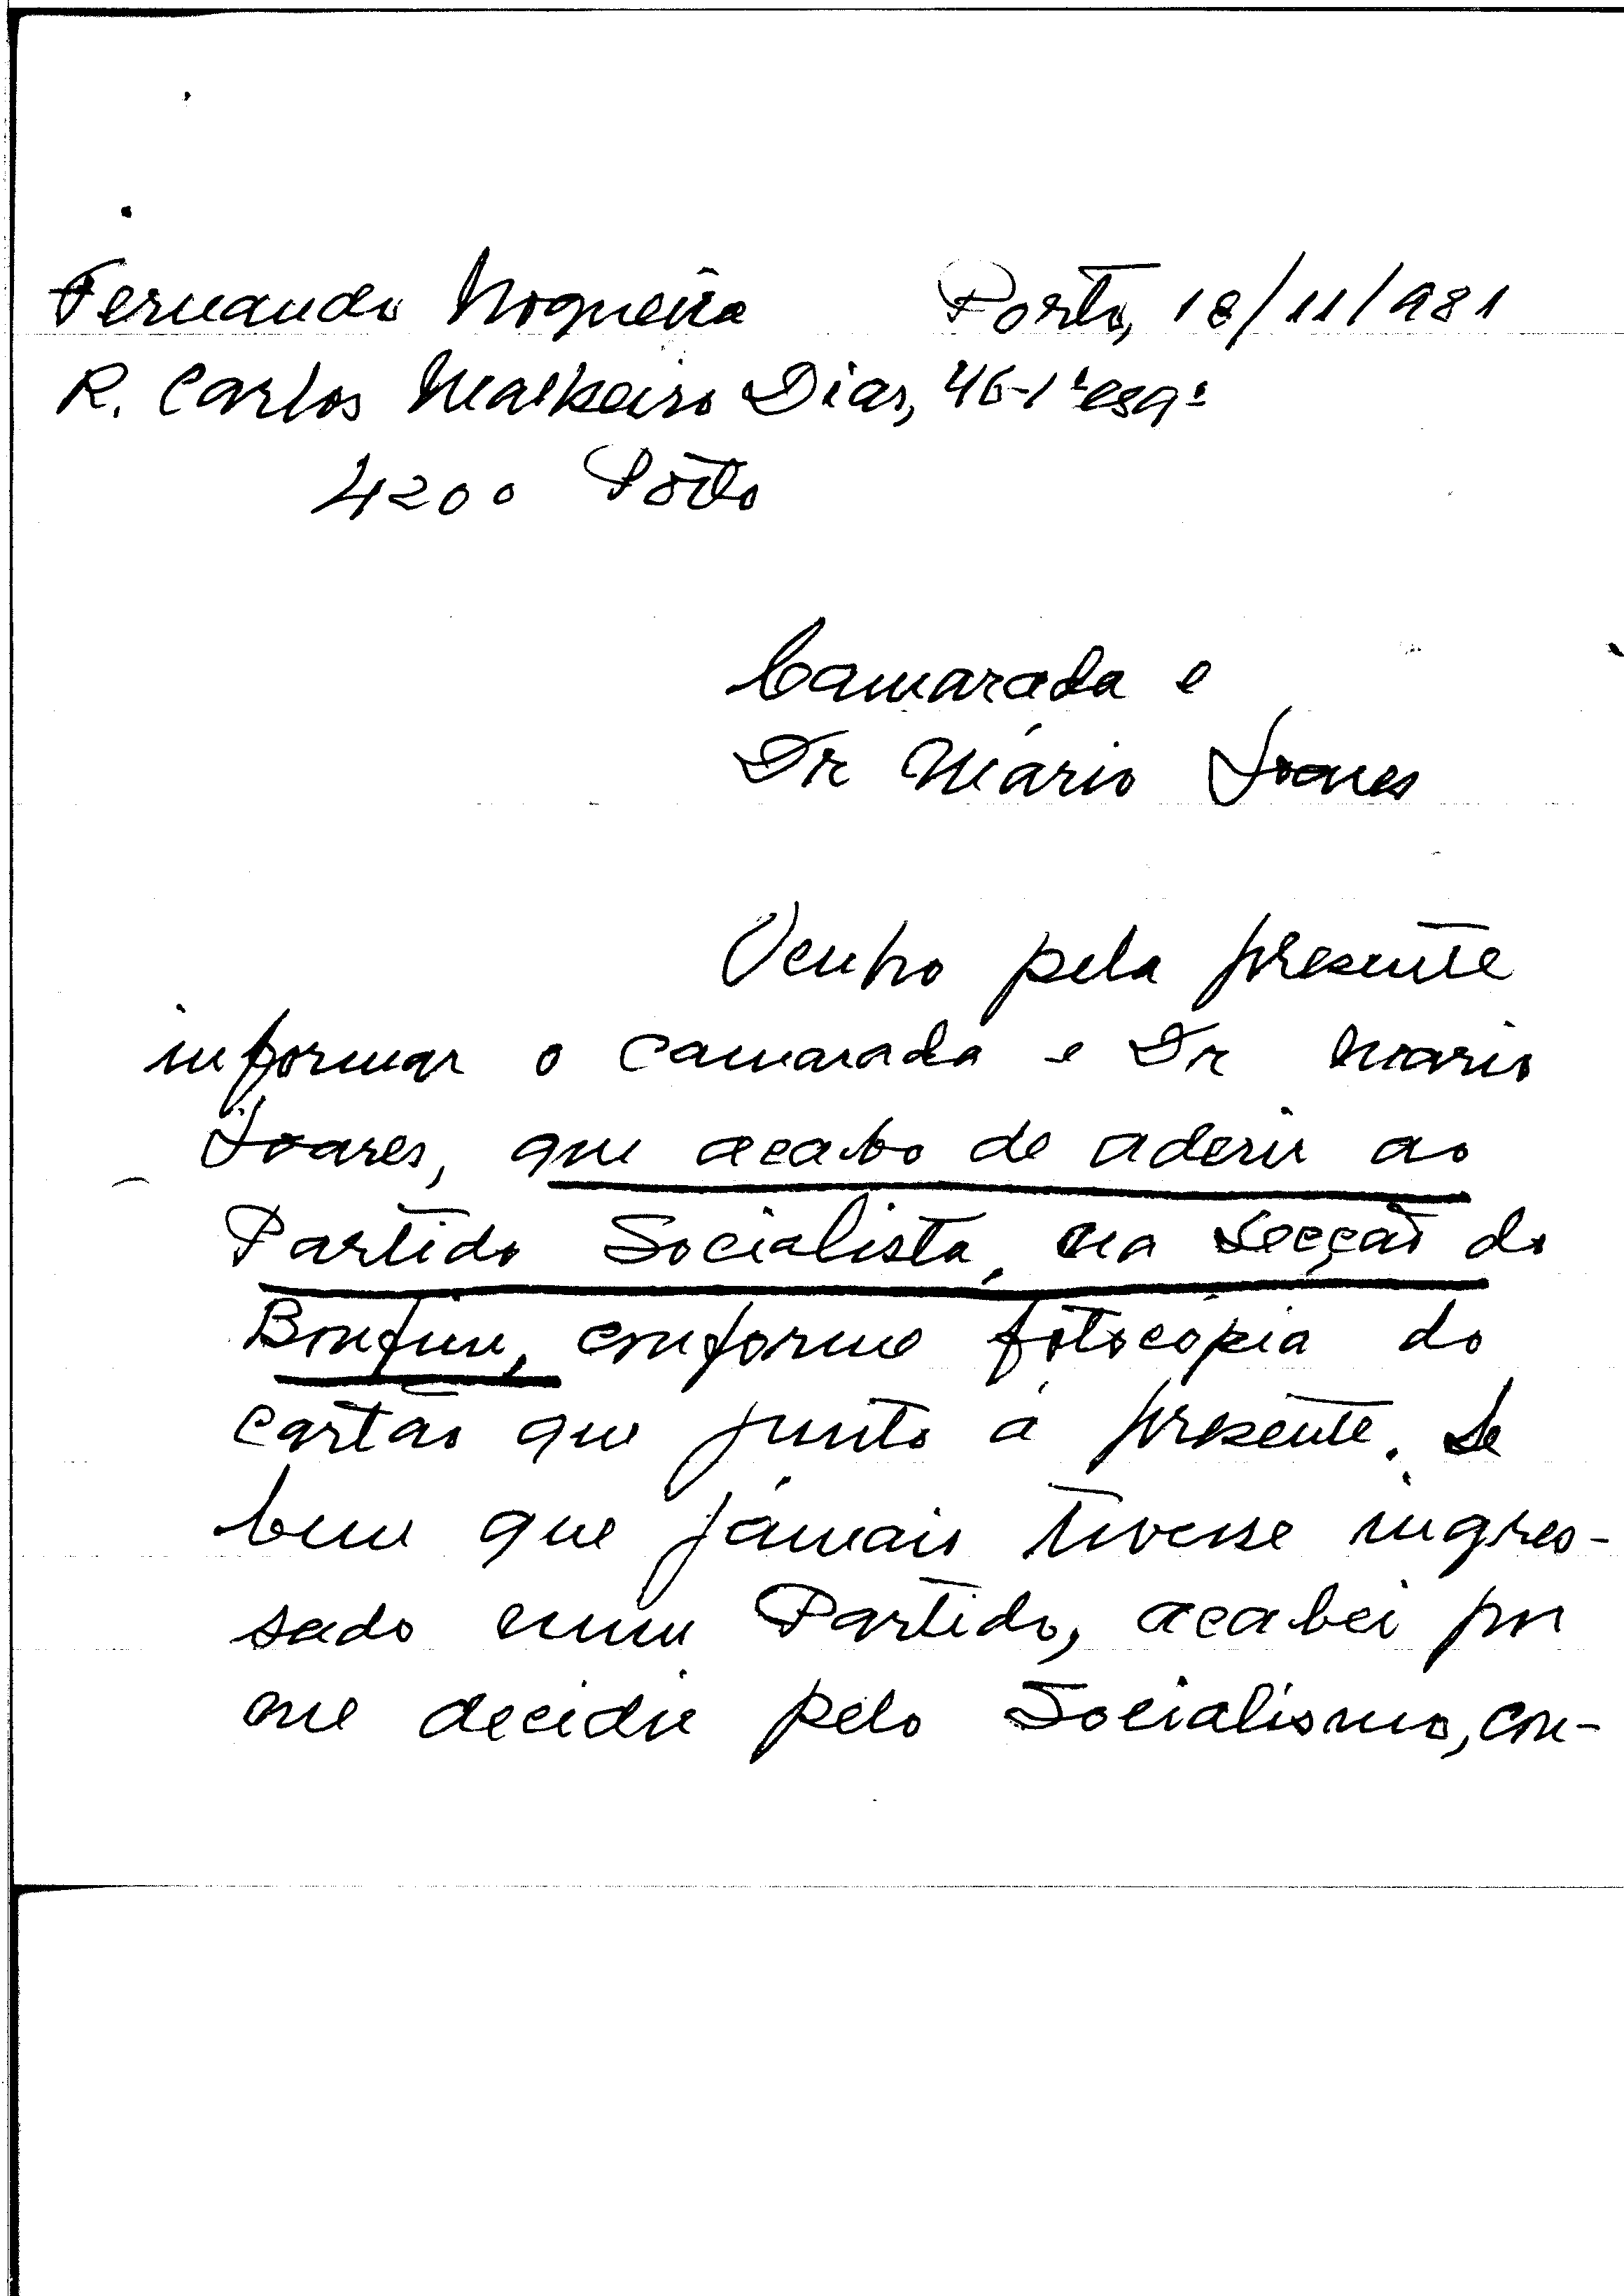 Fernando Nogueira Porto, 18/11/981
R. Carlos Malheiro Dias, 46-1º esqº
4200 Porto
Camarada e
Dr Mário Soares
Venho pela presente
informar o camarada e Dr Mario
Soares, que acabo de aderir ao
Partido Socialista, na Secção do
Bonfim, conforme fotocópia do
cartão que junto à presente. Se
bem que jámais tivesse ingres-
sado num Partido, acabei por
me decidir pelo Socialismo, con-